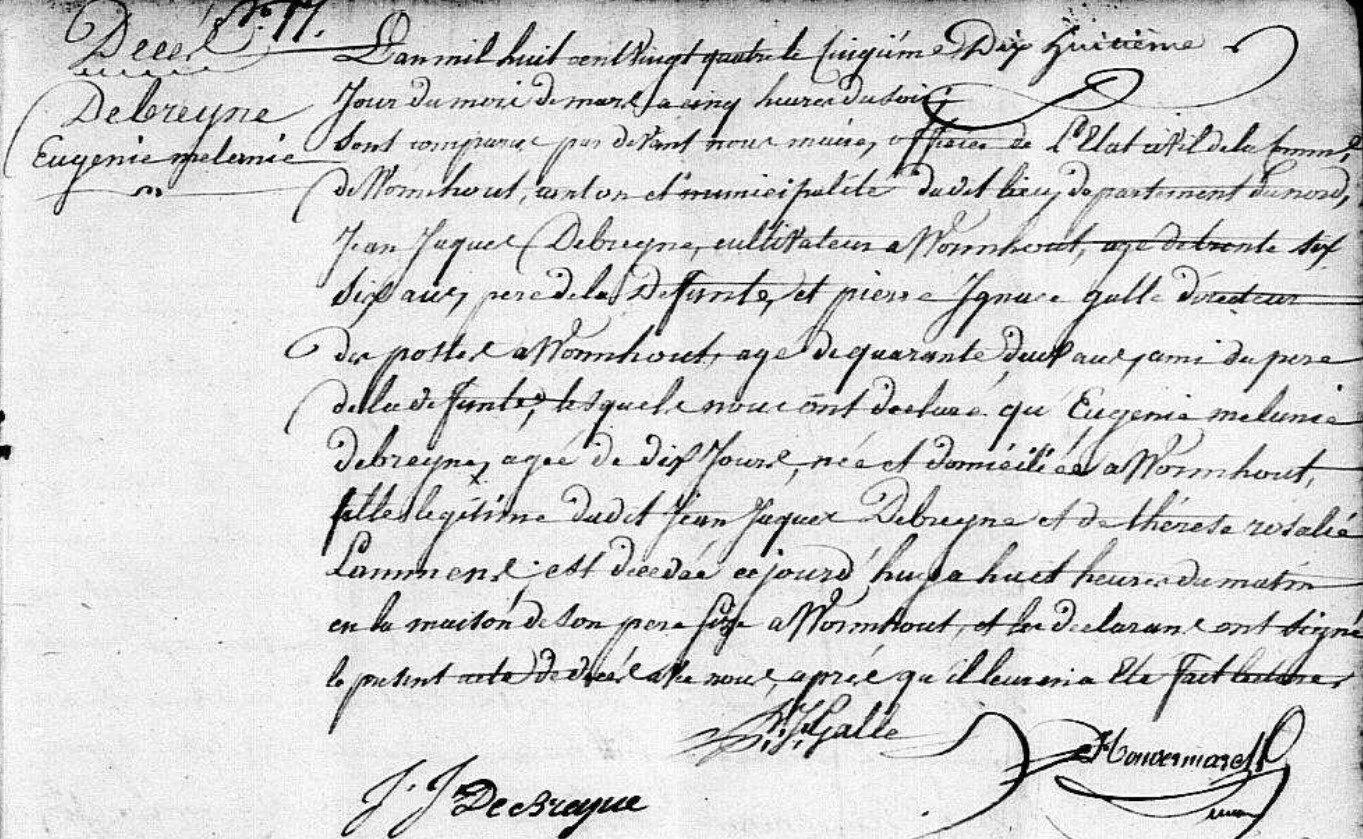 No. 17.
Decés
Debreyne
Eugenie melanie
L'an mil huit cent vingt quatre le Dix huitième
Jour du mois de mars a cinq heures du soir,
sont comparus par devant nous maire, officier de L'Etat civil de la Comm.e
de Wormhout, canton et municipalité dudit lieu, departement du nord,
Jean Jaques Debreyne, cultivateur a Wormhout, agé de trente six
six ans, pere de la Defunte, et pierre Ignace galle directeur
des postes a Wormhout, agé de quarante deux ans, ami du pere
de la defunte, lesquels nous ont declaré qu'Eugenie melanie
debreyne, ageé de dix Jours, née et domiciliée a Wormhout,
fille legitime dudit Jean Jaques Debreyne et de thérese rosalie
Lammens, est decedée cejourd'huy a huit heures du matin
en la maison de son pere sise a Wormhout, et les declarans ont signé
le present acte de decés avec nous, après qu'il leur en a été fait lecture,
P. J. Galle
J. J. Debreyne